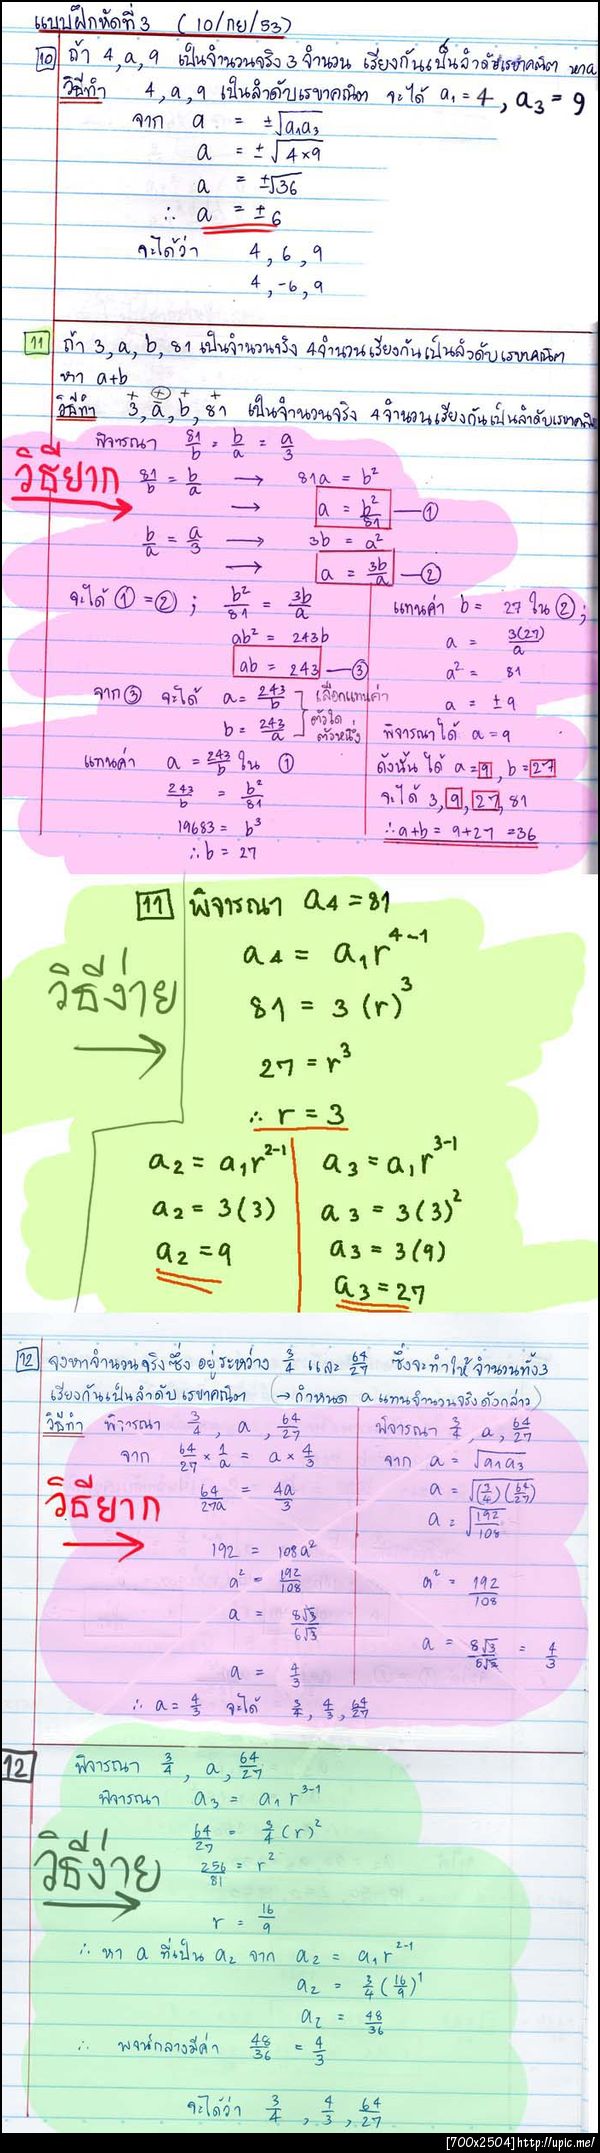 แบบฝึกหัดที่ 3 (10/กย/53)
10 ถ้า 4, a, 9 เป็นจำนวนจริง 3 จำนวน เรียงกันเป็นลำดับเรขาคณิต หา a
วิธีทำ 4, a, 9 เป็นลำดับเรขาคณิต จะได้ a₁ = 4, a₃ = 9
จาก a = ±√a₁a₃
a = ±√4×9
a = ±√36
∴ a = ±6
จะได้ว่า 4, 6, 9
4, -6, 9
11 ถ้า 3, a, b, 81 เป็นจำนวนจริง 4 จำนวนเรียงกันเป็นลำดับเรขาคณิต
หา a+b
วิธีทำ 3, a, b, 81 เป็นจำนวนจริง 4 จำนวนเรียงกันเป็นลำดับเรขาคณิต
วิธียาก
พิจารณา 81/b = b/a = a/3
81/b = b/a → 81a = b²
→ a = b²/81 — ①
b/a = a/3 → 3b = a²
→ a = 3b/a — ②
จะได้ ① = ② ; b²/81 = 3b/a
ab² = 243b
ab = 243 — ③
จาก ③ จะได้ a = 243/b
b = 243/a
เลือกแทนค่า
ตัวใด
ตัวหนึ่ง
แทนค่า a = 243/b ใน ①
243/b = b²/81
19683 = b³
∴ b = 27
แทนค่า b = 27 ใน ② ;
a = 3(27)/a
a² = 81
a = ±9
พิจารณาได้ a = 9
ดังนั้น ได้ a = 9, b = 27
จะได้ 3, 9, 27, 81
∴ a+b = 9+27 = 36
11 พิจารณา a₄ = 81
วิธีง่าย
a₄ = a₁r⁴⁻¹
81 = 3(r)³
27 = r³
∴ r = 3
a₂ = a₁r²⁻¹
a₂ = 3(3)
a₂ = 9
a₃ = a₁r³⁻¹
a₃ = 3(3)²
a₃ = 3(9)
a₃ = 27
12 จงหาจำนวนจริงซึ่งอยู่ระหว่าง 3/4 และ 64/27 ซึ่งจะทำให้จำนวนทั้ง 3
เรียงกันเป็นลำดับเรขาคณิต (→ กำหนด a แทนจำนวนจริงดังกล่าว)
วิธีทำ พิจารณา 3/4, a, 64/27
วิธียาก
จาก 64/27 × 1/a = a × 4/3
64/27a = 4a/3
192 = 108a²
a² = 192/108
a = 8√3/6√3
a = 4/3
∴ a = 4/3 จะได้ 3/4, 4/3, 64/27
พิจารณา 3/4, a, 64/27
จาก a = √a₁a₃
a = √(3/4)(64/27)
a = √192/108
a² = 192/108
a = 8√3/6√3 = 4/3
12 พิจารณา 3/4, a, 64/27
วิธีง่าย
พิจารณา a₃ = a₁r³⁻¹
64/27 = 3/4(r)²
256/81 = r²
r = 16/9
∴ หา a ที่เป็น a₂ จาก a₂ = a₁r²⁻¹
a₂ = 3/4(16/9)¹
a₂ = 48/36
∴ พจน์กลางมีค่า 48/36 = 4/3
จะได้ว่า 3/4, 4/3, 64/27
[700x2504]http://upic.me/